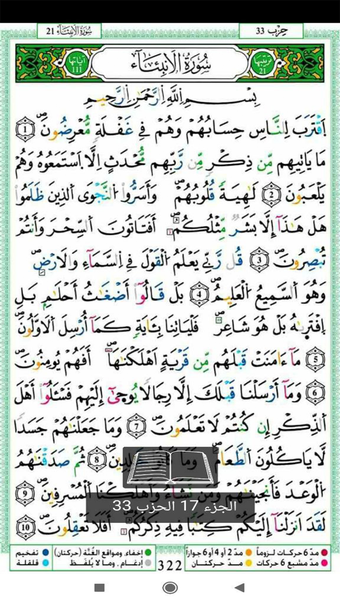 سُورَةُ الْأَنبِيَاء 21
حِزب 33
آيَاتُهَا 111
سُورَةُ الْأَنبِيَآء
تَرْتِيبُهَا 21
بِسْمِ اللَّهِ الرَّحْمَٰنِ الرَّحِيمِ
اِقْتَرَبَ لِلنَّاسِ حِسَابُهُمْ وَهُمْ فِي غَفْلَةٖ مُّعْرِضُونَۖ 1
مَا يَاتِيهِم مِّن ذِكْرٖ مِّن رَّبِّهِم مُّحْدَثٍ اِلَّا اَسْتَمَعُوهُ وَهُمْ
يَلْعَبُونَ 2 لَٰهِيَةٗ قُلُوبُهُمْۖ وَأَسَرُّواْ النَّجْوَى الَّذِينَ ظَلَمُواْ
هَلْ هَٰذَآ إِلَّا بَشَرٞ مِّثْلُكُمُۥٓۖ أَفَتَاتُونَ السِّحْرَ وَأَنتُمْ
تُبْصِرُونَۖ 3 قُل رَّبِّي يَعْلَمُ الْقَوْلَ فِي السَّمَآءِ وَالَارْضِۖ
وَهُوَ السَّمِيعُ الْعَلِيمُۖ 4 بَلْ قَالُوٓاْ أَضْغَٰثُ أَحْلَٰمِۢ بَلِ
اِفْتَرَىٰهُ بَلْ هُوَ شَاعِرٞۖ فَلْيَاتِنَا بِـَٔايَةٖ كَمَآ أُرْسِلَ اَلَاوَّلُونَۖ
5 مَآ ءَامَنَتْ قَبْلَهُم مِّن قَرْيَةٍ اَهْلَكْنَٰهَآۖ أَفَهُمْ يُومِنُونَۖ
6 وَمَآ أَرْسَلْنَا قَبْلَكَ إِلَّا رِجَالٗا يُوحَىٰٓ إِلَيْهِمْ فَسْـَٔلُوٓاْ أَهْلَ
الذِّكْرِ إِن كُنتُمْ لَا تَعْلَمُونَۖ 7 وَمَا جَعَلْنَٰهُمْ جَسَداٗ
لَّا يَاكُلُونَ الطَّعَامَۖ وَمَا كَا لِدِينَۖ 8 ثُمَّ صَدَقْنَٰهُمُ
الْوَعْدَ فَأَنجَيْنَٰهُمْ وَمَن نَّشَآءُ وَأَهْلَكْنَا الْمُسْرِفِينَۖ 9
لَقَدَ اَنزَلْنَآ إِلَيْكُمْ كِتَٰباٗ فِيهِ ذِكْرُكُمُۥٓۖ أَفَلَا تَعْقِلُونَۖ 10
الجزء 17 الحزب 33
مدّ 6 حركات لزوماً
مدّ 2 أو 4 أو 6 جوازاً
إخفاء ومواقع الغُنَّة (حركتان)
تفخيم
مدّ مشبع 6 حركات
مدّ حركتان
322
إدغام، وما لا يُلفَظ
قلقلة